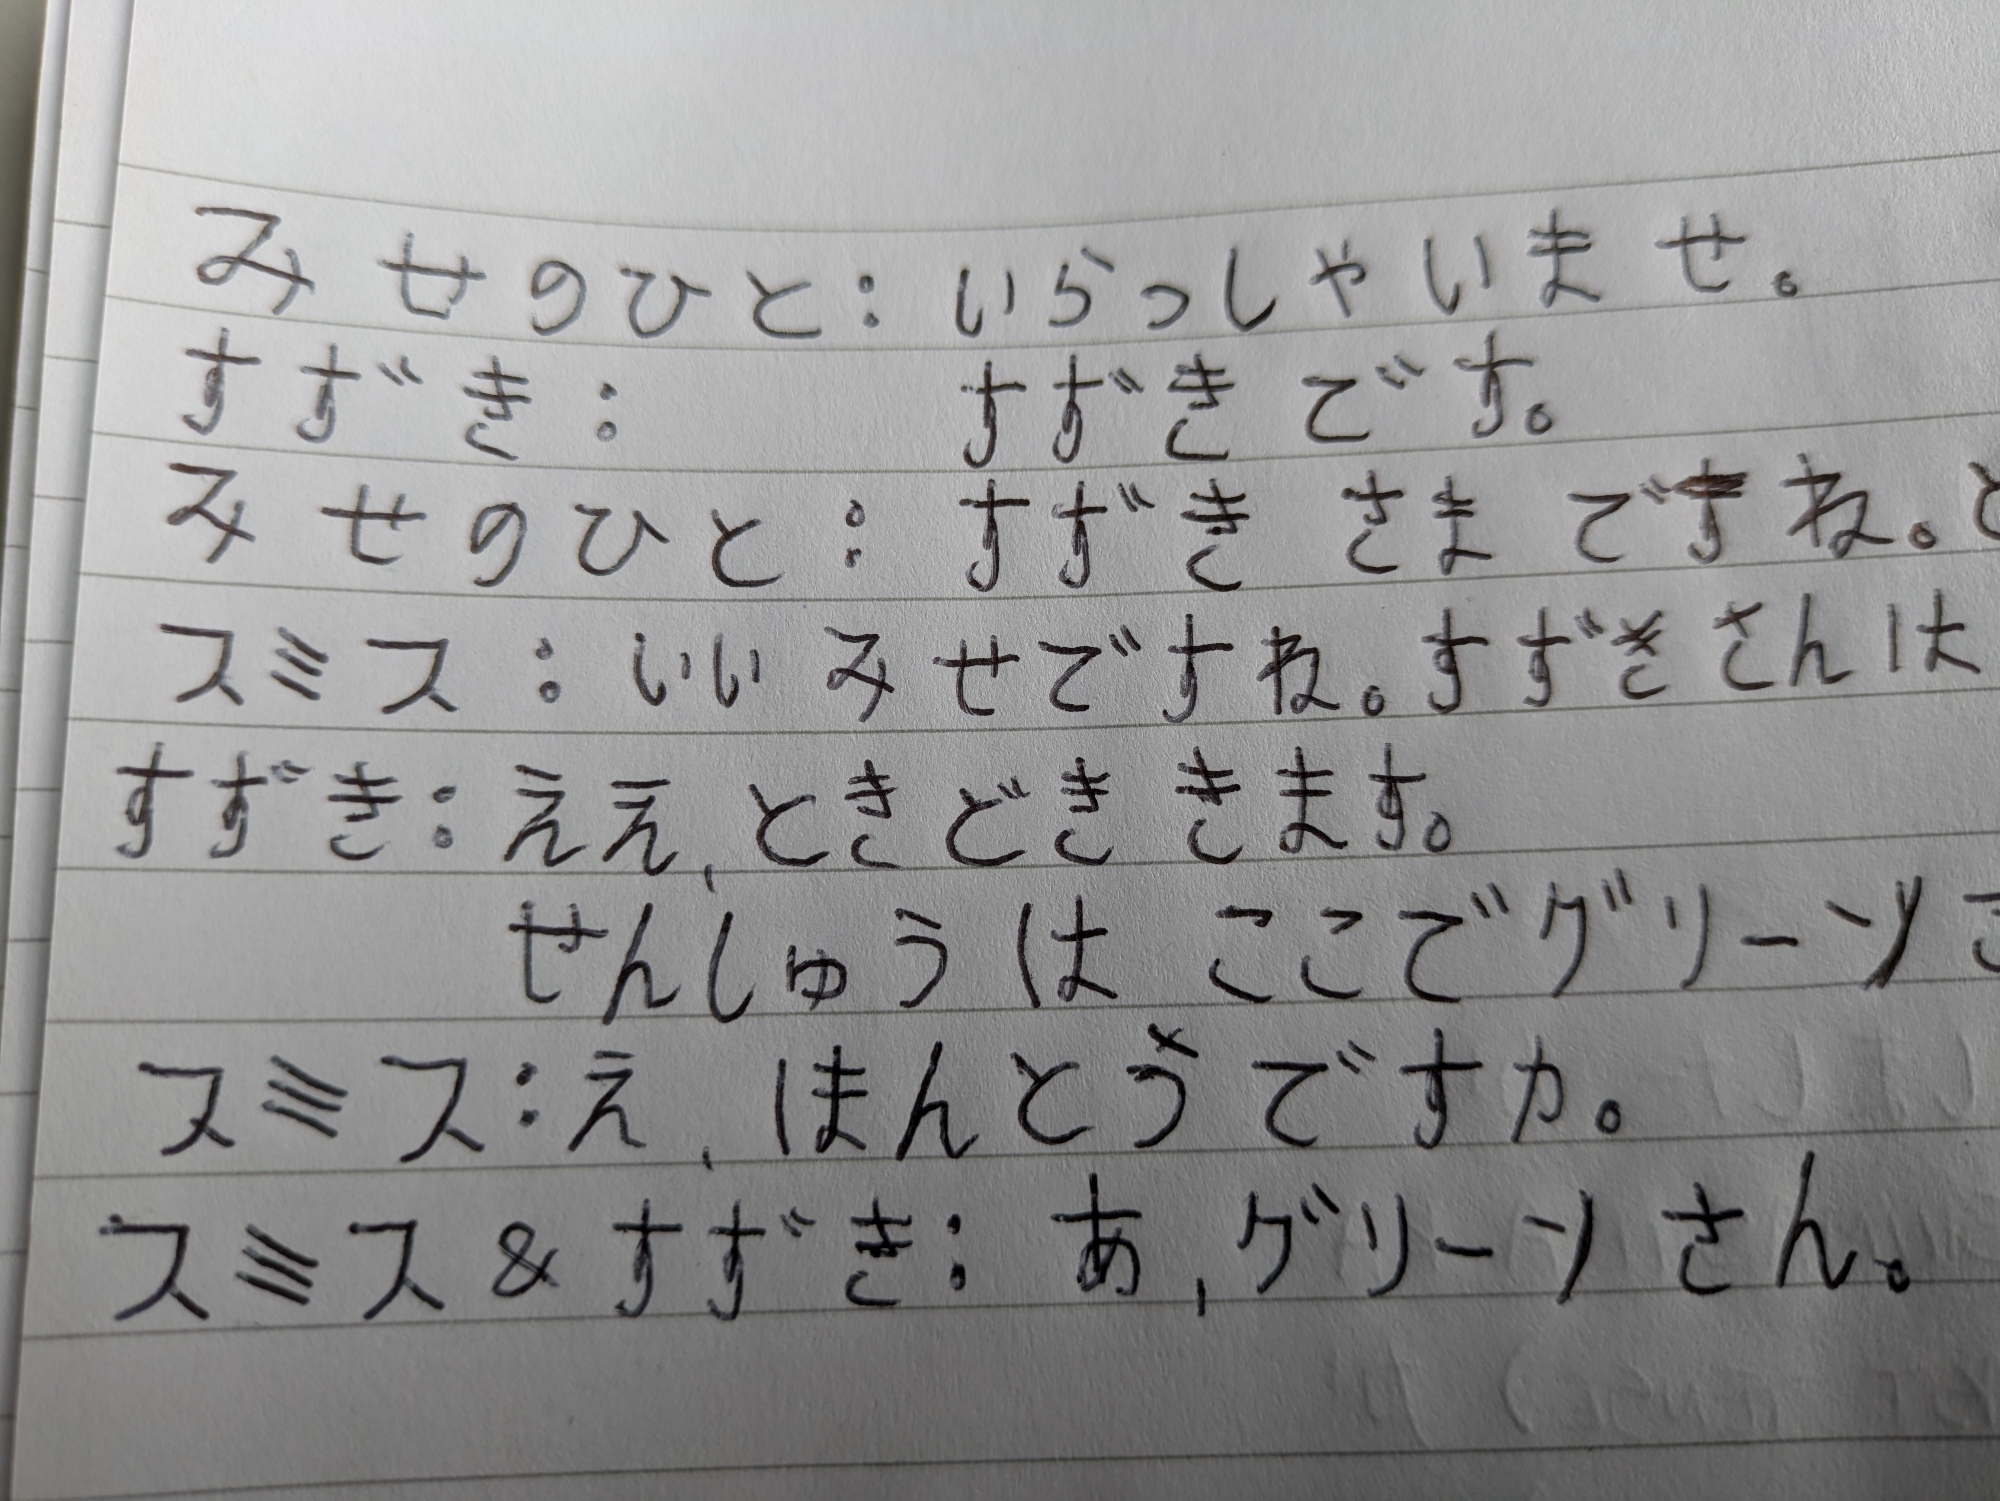 みせのひと：いらっしゃいませ。
すずき：すずきです。
みせのひと：すずき さまですね。と
スミス：いい みせですね。すずきさんは
すずき：ええ, ときどき きます。
せんしゅうは ここでグリーンさ
スミス：え, ほんとうですか。
スミス＆すずき：あ, グリーンさん。